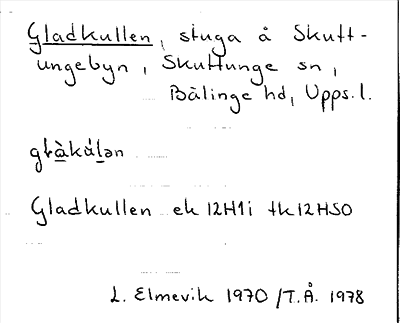 Gladkullen, stuga å Skutt-
ungebyn, Skuttunge sn,
Bälinge hd, Upps. l.
glàkúlən
Gladkullen ek 12H1i tk12HSO
L. Elmevik 1970/T.Å. 1978